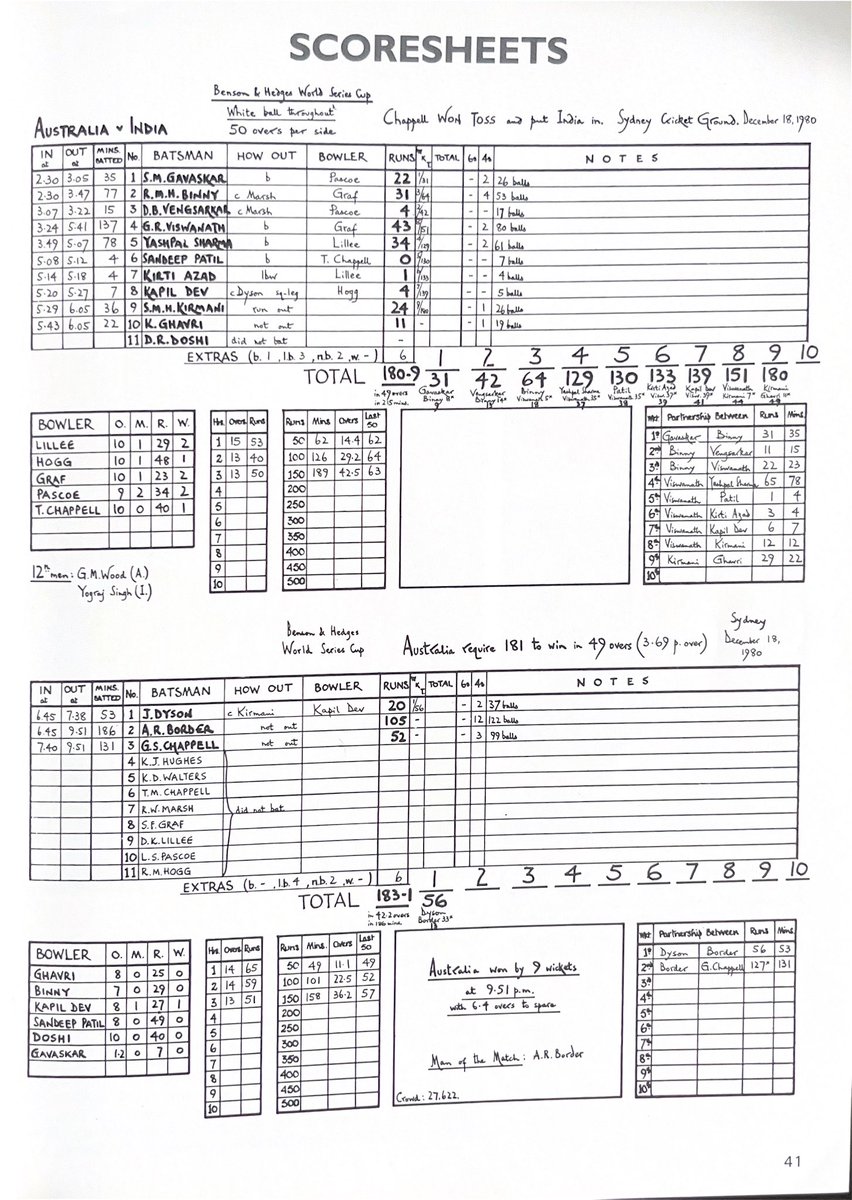 SCORESHEETS
Benson & Hedges World Series Cup
White ball throughout
AUSTRALIA v INDIA 50 overs per side Chappell Won Toss and put India in. Sydney Cricket Ground. December 18, 1980
IN at OUT at MINS. BATTED No. BATSMAN HOW OUT BOWLER RUNS WKT TOTAL 6s 4s NOTES
2.30 3.05 35 1 S.M. GAVASKAR b Pascoe 22 1/31 - 2 26 balls
2.30 3.47 77 2 R.M.H. BINNY c Marsh Graf 31 3/64 - 4 53 balls
3.07 3.22 15 3 D.B. VENGSARKAR c Marsh Pascoe 4 2/42 - - 17 balls
3.24 5.41 137 4 G.R. VISWANATH b Graf 43 8/151 - 2 80 balls
3.49 5.07 78 5 YASHPAL SHARMA b Lillee 34 4/129 - 2 61 balls
5.08 5.12 4 6 SANDEEP PATIL b T. Chappell 0 5/130 - - 7 balls
5.14 5.18 4 7 KIRTI AZAD lbw Lillee 1 6/133 - - 4 balls
5.20 5.27 7 8 KAPIL DEV c Dyson sq-leg Hogg 4 7/139 - - 5 balls
5.29 6.05 36 9 S.M.H. KIRMANI run out 24 9/180 - 1 26 balls
5.43 6.05 22 10 K. GHAVRI not out 11 - - 1 19 balls
11 D.R. DOSHI did not bat -
EXTRAS (b. 1, l.b. 3, n.b. 2, w -) 6 1 2 3 4 5 6 7 8 9 10
TOTAL 180-9 31 42 64 129 130 133 139 151 180
in 49 overs Gavaskar Vengsarkar Binny Yashpal Sharma Patil Kirti Azad Kapil Dev Viswanath Kirmani
in 215 mins. Binny 11* Binny 14* Viswanath 5* Viswanath 35* Viswanath 35* Visw. 37* Visw. 39* Kirmani 7* Ghavri 11*
9 13 18 37 38 39 41 44 49
BOWLER O. M. R. W.
LILLEE 10 1 29 2
HOGG 10 1 48 1
GRAF 10 1 23 2
PASCOE 9 2 34 2
T. CHAPPELL 10 0 40 1
12th men: G.M. Wood (A.)
Yograj Singh (I.)
Hrs. Overs Runs
1 15 53
2 13 40
3 13 50
4
5
6
7
8
9
10
RUNS MINS OVERS LAST 50
50 62 14.4 62
100 126 29.2 64
150 189 42.5 63
200
250
300
350
400
450
500
Wkt Partnership Between Runs Mins.
1st Gavaskar Binny 31 35
2nd Binny Vengsarkar 11 15
3rd Binny Viswanath 22 23
4th Viswanath Yashpal Sharma 65 78
5th Viswanath Patil 1 4
6th Viswanath Kirti Azad 3 4
7th Viswanath Kapil Dev 6 7
8th Viswanath Kirmani 12 12
9th Kirmani Ghavri 29 22
10th
Benson & Hedges
World Series Cup Australia require 181 to win in 49 overs (3.69 p. over)
Sydney
December 18,
1980
IN at OUT at MINS. BATTED No. BATSMAN HOW OUT BOWLER RUNS WKT TOTAL 6s 4s NOTES
6.45 7.38 53 1 J. DYSON c Kirmani Kapil Dev 20 1/56 - 2 37 balls
6.45 9.51 186 2 A.R. BORDER not out 105 - - 12 122 balls
7.40 9.51 131 3 G.S. CHAPPELL not out 52 - - 3 99 balls
4 K.J. HUGHES
5 K.D. WALTERS
6 T.M. CHAPPELL
7 R.W. MARSH did not bat
8 S.F. GRAF
9 D.K. LILLEE
10 L.S. PASCOE
11 R.M. HOGG
EXTRAS (b. -, l.b. 4, n.b. 2, w. -) 6 1 2 3 4 5 6 7 8 9 10
TOTAL 183-1 56
in 42.2 overs Dyson
in 186 mins. Border 33*
BOWLER O. M. R. W.
GHAVRI 8 0 25 0
BINNY 7 0 29 0
KAPIL DEV 8 1 27 1
SANDEEP PATIL 8 0 49 0
DOSHI 10 0 40 0
GAVASKAR 1.2 0 7 0
Hrs. Overs Runs
1 14 65
2 14 59
3 13 51
4
5
6
7
8
9
10
RUNS MINS. OVERS LAST 50
50 49 11.1 49
100 101 22.5 52
150 158 36.2 57
200
250
300
350
400
450
500
Australia won by 9 wickets
at 9.51 p.m.
with 6.4 overs to spare
Man of the Match: A.R. Border
Crowd: 27,622.
Wkt Partnership Between Runs Mins.
1st Dyson Border 56 53
2nd Border G. Chappell 127* 131
3rd
4th
5th
6th
7th
8th
9th
10th
41